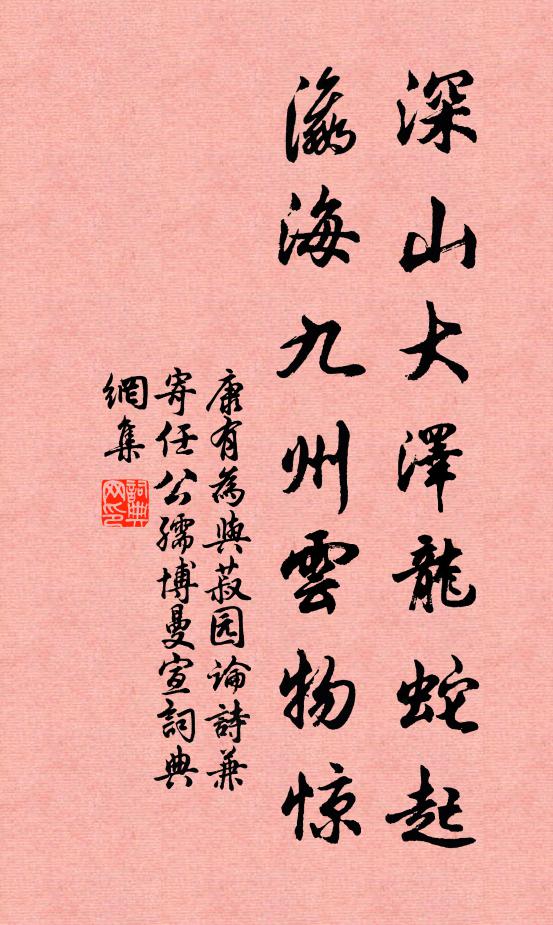 深山大澤龍蛇起
瀛海九州雲物惊
康有為與菽园論詩兼
寄任公孺博曼宣詞典
網集
詞典网印